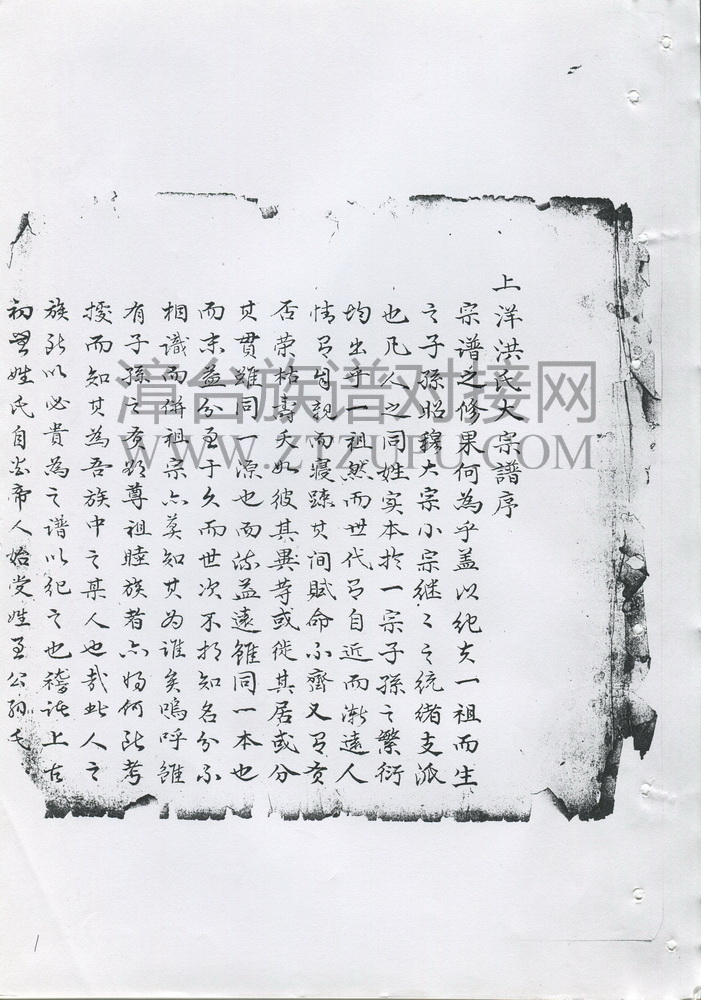 上洋洪氏大宗譜序
宗譜之修果何為乎盖以纪夫一祖而生
之子孫昭穆大宗小宗继之之统绪支派
也凡人之同姓实本於一宗子孫之繁衍
均出乎一祖然而世代有自近而漸遠人
情有自親而寝踈其间賦命不齊又有贡
否荣枯壽夭如彼其異等或徙其居或分
其贯雖同一源也而流益遠雖同一本也
而末益分至于久而世次不相知名分不
相識而併祖宗亦莫知其为谁矣嗚呼雖
有子孫之有能尊祖睦族者亦将何所考
據而知其為吾族中之某人也哉此人之
族所以必貴為之谱以纪之也稽诸上古
初無姓氏自炎帝人始受姓至公孙氏
漳台族谱对接网
WWW.ZTZUPU.COM
1